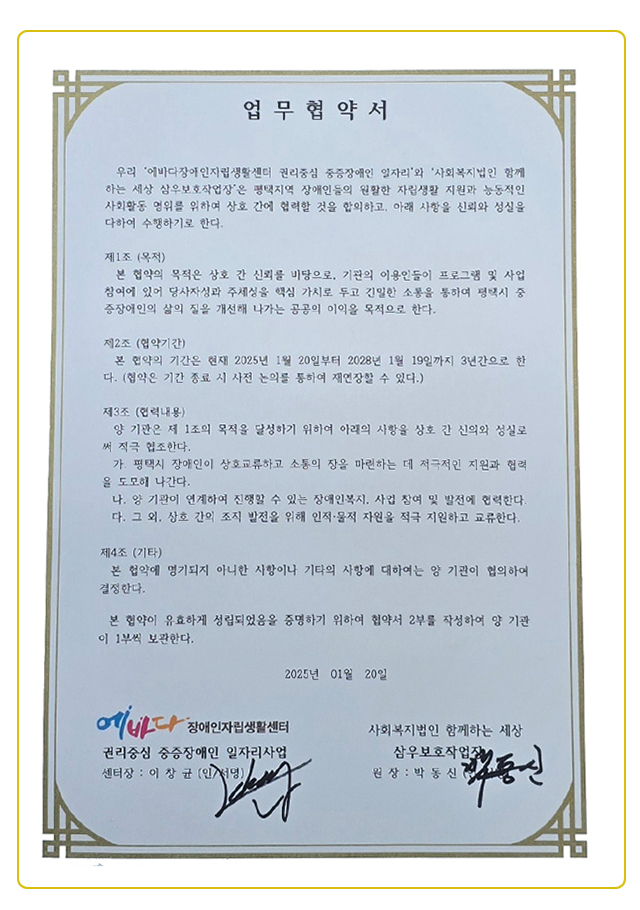 업무협약서
우리 '에바다장애인자립생활센터 권리중심 중증장애인 일자리'와 '사회복지법인 함께
하는 세상 삼우보호작업장'은 평택지역 장애인들의 원활한 자립생활 지원과 능동적인
사회활동 영위를 위하여 상호 간에 협력할 것을 합의하고, 아래 사항을 신뢰와 성실을
다하여 수행하기로 한다.
제1조 (목적)
본 협약의 목적은 상호 간 신뢰를 바탕으로, 기관의 이용인들이 프로그램 및 사업
참여에 있어 당사자성과 주체성을 핵심 가치로 두고 긴밀한 소통을 통하여 평택시 중
증장애인의 삶의 질을 개선해 나가는 공공의 이익을 목적으로 한다.
제2조 (협약기간)
본 협약의 기간은 현재 2025년 1월 20일부터 2028년 1월 19일까지 3년간으로 한
다. (협약은 기간 종료 시 사전 논의를 통하여 재연장할 수 있다.)
제3조 (협력내용)
양 기관은 제 1조의 목적을 달성하기 위하여 아래의 사항을 상호 간 신의와 성실로
써 적극 협조한다.
가. 평택시 장애인이 상호교류하고 소통의 장을 마련하는 데 적극적인 지원과 협력
을 도모해 나간다.
나. 양 기관이 연계하여 진행할 수 있는 장애인복지, 사업 참여 및 발전에 협력한다.
다. 그 외, 상호 간의 조직 발전을 위해 인적·물적 자원을 적극 지원하고 교류한다.
제4조 (기타)
본 협약에 명기되지 아니한 사항이나 기타의 사항에 대하여는 양 기관이 협의하여
결정한다.
본 협약이 유효하게 성립되었음을 증명하기 위하여 협약서 2부를 작성하여 양 기관
이 1부씩 보관한다.
2025년 01월 20일
에바다 장애인자립생활센터
권리중심 중증장애인 일자리사업
센터장 : 이 창 균 (인/서명)
사회복지법인 함께하는 세상
삼우보호작업장
원 장 : 박 동 신